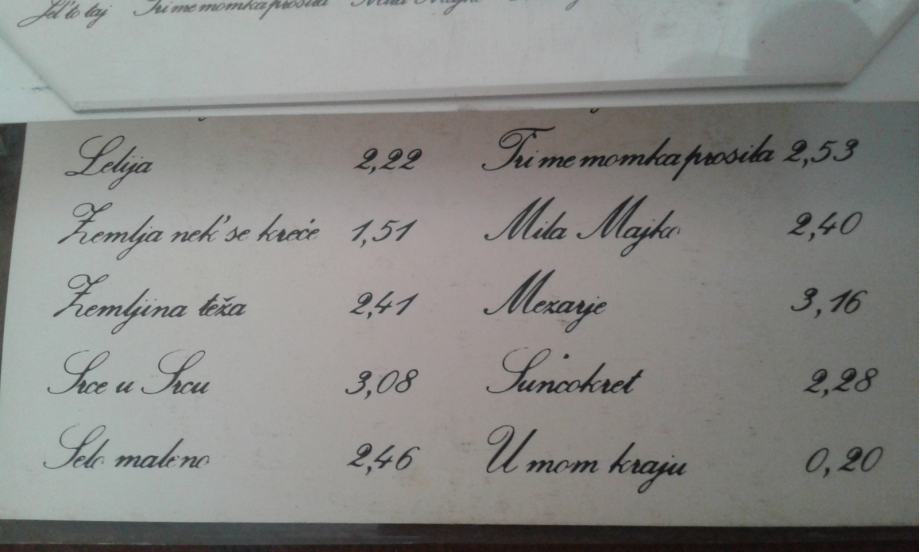 Jel' to taj Tri me momka prosila Mila Majko
Lelija 2,22
Zemlja nek' se kreće 1,51
Zemljina teža 2,41
Srce u Srcu 3,08
Selo maleno 2,46
Tri me momka prosila 2,53
Mila Majko 2,40
Mezarje 3,16
Suncokret 2,28
U mom kraju 0,20